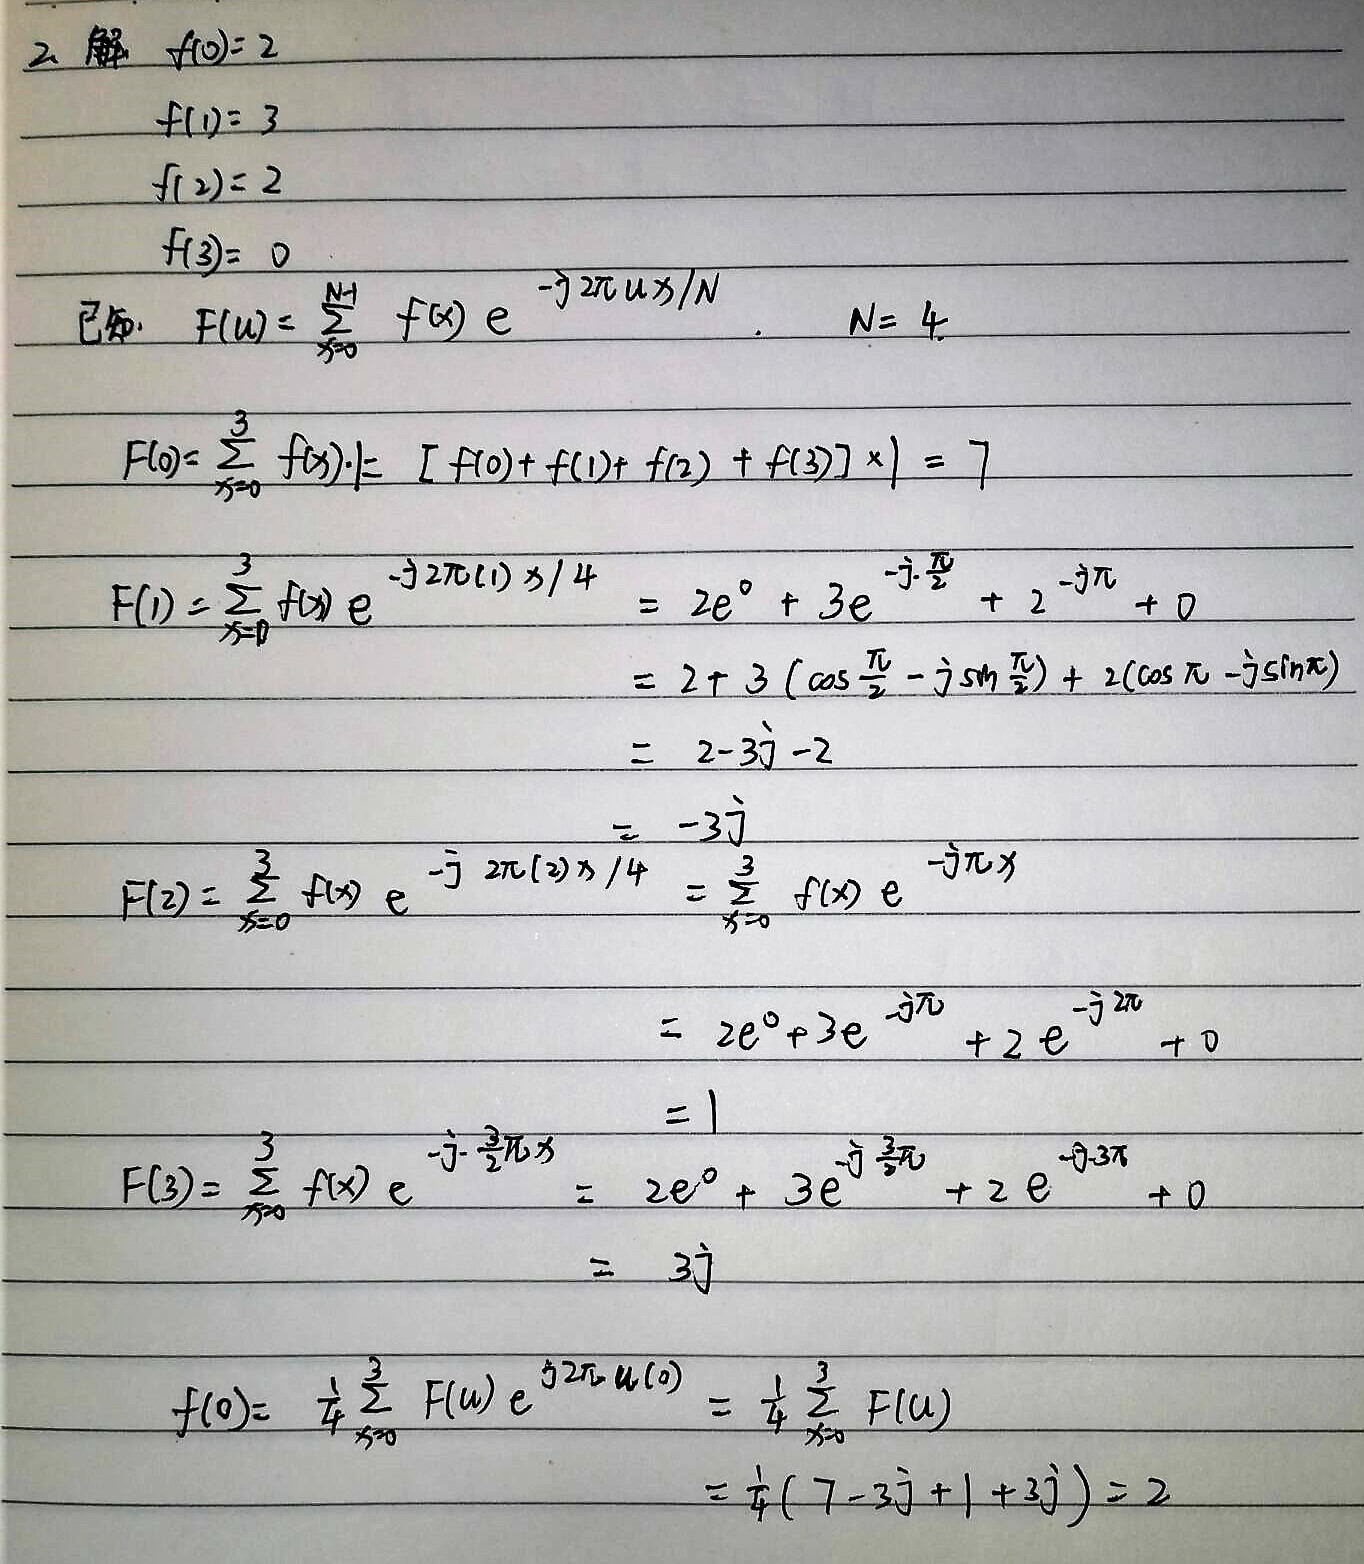 2. 解 f(0)=2
f(1)=3
f(2)=2
f(3)=0
已知. F(u)=∑_{x=0}^{N-1} f(x) e^{-j2πux/N}. N=4.
F(0)=∑_{x=0}^{3} f(x)·1= [f(0)+f(1)+f(2)+f(3)]×1=7
F(1)=∑_{x=0}^{3} f(x) e^{-j2π(1)x/4} = 2e^0 + 3e^{-j·π/2} + 2^{-jπ} + 0
= 2+3(cos π/2 - j sin π/2) + 2(cos π - j sin π)
= 2-3j-2
= -3j
F(2)=∑_{x=0}^{3} f(x) e^{-j2π(2)x/4} = ∑_{x=0}^{3} f(x) e^{-jπx}
= 2e^0+3e^{-jπ} + 2e^{-j2π} + 0
= 1
F(3)=∑_{x=0}^{3} f(x) e^{-j·3/2πx} = 2e^0 + 3e^{-j3/2π} + 2e^{-j·3π} + 0
= 3j
f(0)= 1/4 ∑_{x=0}^{3} F(u) e^{j2πu(0)} = 1/4 ∑_{x=0}^{3} F(u)
= 1/4(7-3j+1+3j)=2